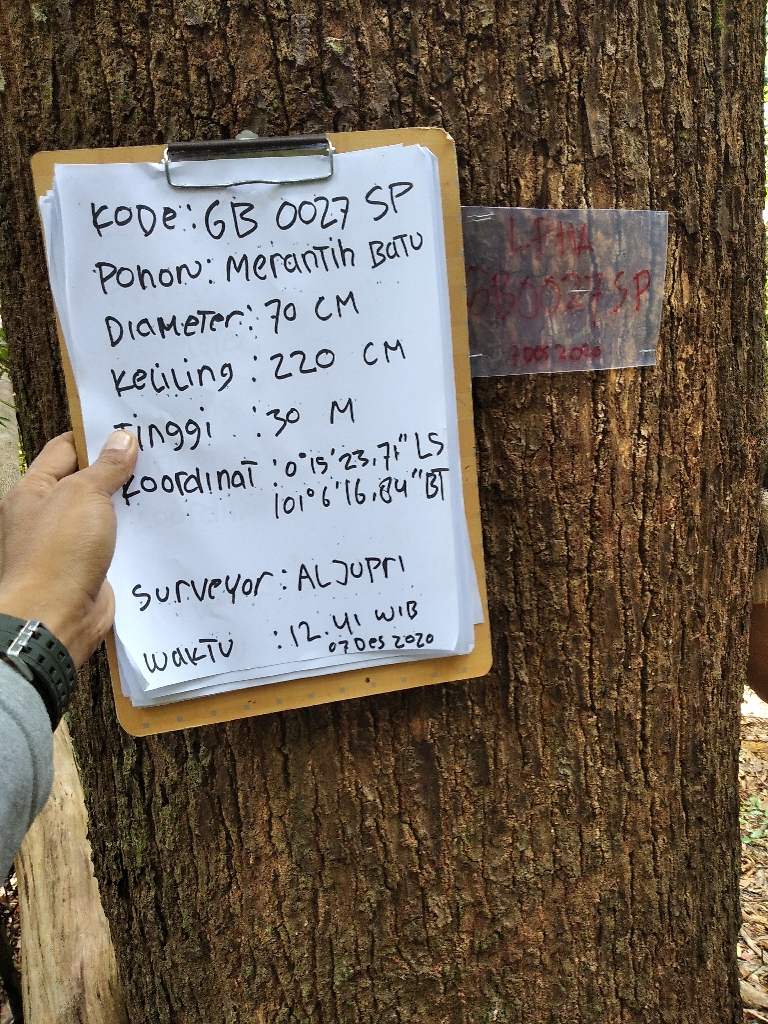 Kode: GB 0027 SP
Pohon: Merantih Batu
Diameter: 70 CM
Keliling: 220 CM
Tinggi: 30 M
Koordinat: 0°15'23,71" LS
101°6'16,84" BT
Surveyor: ALJUPRI
Waktu: 12.41 WIB
07 Des 2020
GB0027 SP
7 Des 2020